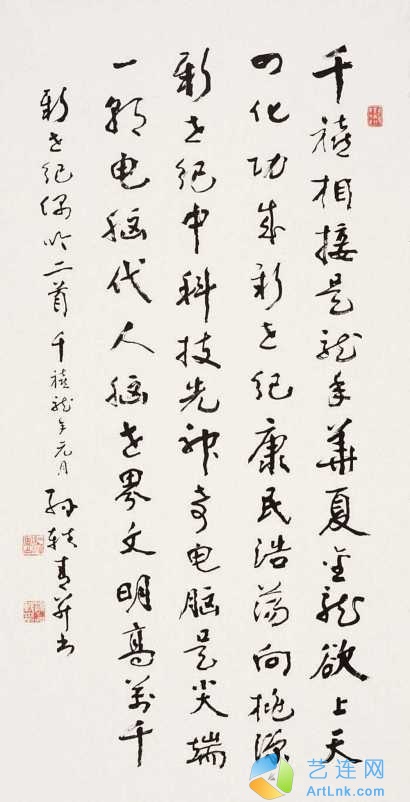 千禧相接是龙年華夏金龙欲上天
四化功成新世纪康民浩荡向桃源
新世纪中科技先神奇电脑是尖端
一朝电脑代人脑世界文明高萬千
新世纪偶吟二首 千禧龙年元月 孙轶青并书
艺连网
ArtLnk.com